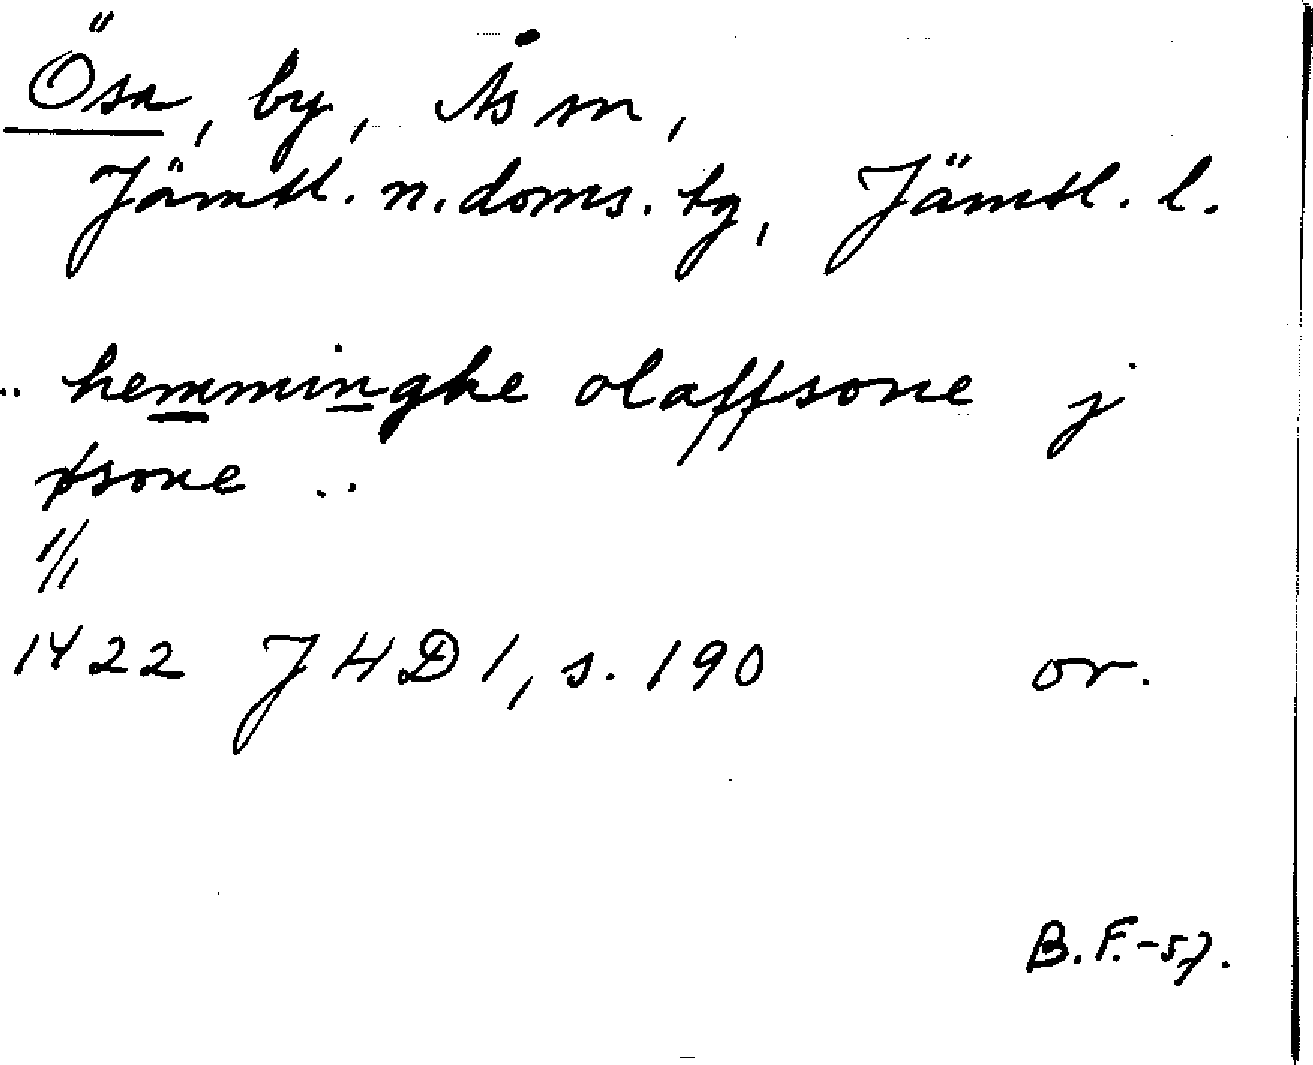 Ösa, by, Ås sn,
Jämtl. n. doms. tg, Jämtl. l.
.. hemminghe olaffsone j
øsone ..
1422 JHD 1, s. 190 or.
B.F.-57.